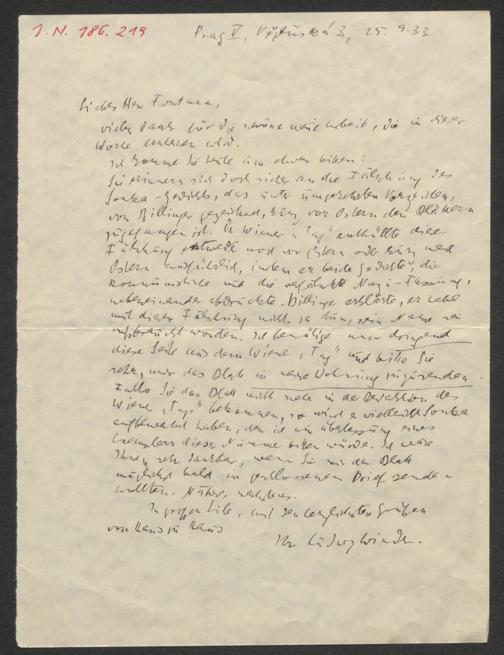 I.N. 186.219
Prag V, Vězňská 3, 25. 9. 33.
Lieber Herr Fontana,
vielen Dank für die schöne neue Arbeit, die in dieser
Woche erscheinen wird.
Ich komme Sie heute um etwas bitten:
Sie erinnern sich doch sicher an die Fälschung des
Sonka-Gedichts, das unter umgekehrten Vorzeichen,
von Billinger gezeichnet, kurz vor Ostern den Blättern
zugegangen ist. Der Wiener „Tag" enthüllte diese
Fälschung entweder noch vor Ostern oder kurz nach
Ostern ausführlich, indem er beide Gedichte, die
kommunistische und die gefälschte Nazi-Fassung,
nebeneinander abdruckte. Billinger erklärte, er habe
mit dieser Fälschung nichts zu tun, sein Name sei
mißbraucht worden. Ich benötige nun dringend
diese Seite aus dem Wiener „Tag" und bitte Sie
sehr, mir das Blatt in meine Wohnung zuzusenden.
Falls Sie das Blatt nicht mehr in der Redaktion des
Wiener „Tags" bekommen, so wird es vielleicht Sonka
aufbewahrt haben, den ich um Überlassung eines
Exemplars dieser Nummer bitten würde. Ich wäre
Ihnen sehr dankbar, wenn Sie mir das Blatt
möglichst bald in geschlossenem Brief senden
wollten. Näheres nächstens.
In großer Eile, mit den herzlichsten Grüßen
von Haus zu Haus
Ihr Ludwig Winder.